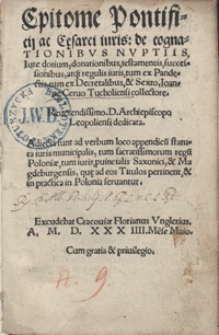 Epitome Pontifi-
cij ac Cesarei iuris: de cogna-
TIONIBVS NVPTIIS,
Iure dotium, donationibus, testamentis, succes-
sionibus, atq; regulis iuris, tum ex Pande-
ctis, tum ex Decretalibus, & Sexto, Ioan-
Ceruo Tucholiensi collectore.
D. Archiepiscopo
Leopoliensi dedicata.
sunt ad verbum loco appendicis statu-
ta iuris municipalis, tum sacratissimorum regū
Poloniæ, tum iuris prouincialis Saxonici, & Ma
gdeburgensis, quę ad eos Titulos pertinent, &
in practica in Polonia seruantur.
J.W.B.
Excudebat Cracouiæ Florianus Vnglerius.
A, M, D, XXX IIII. Mēse Maio.
Cum gratia & priuilegio.